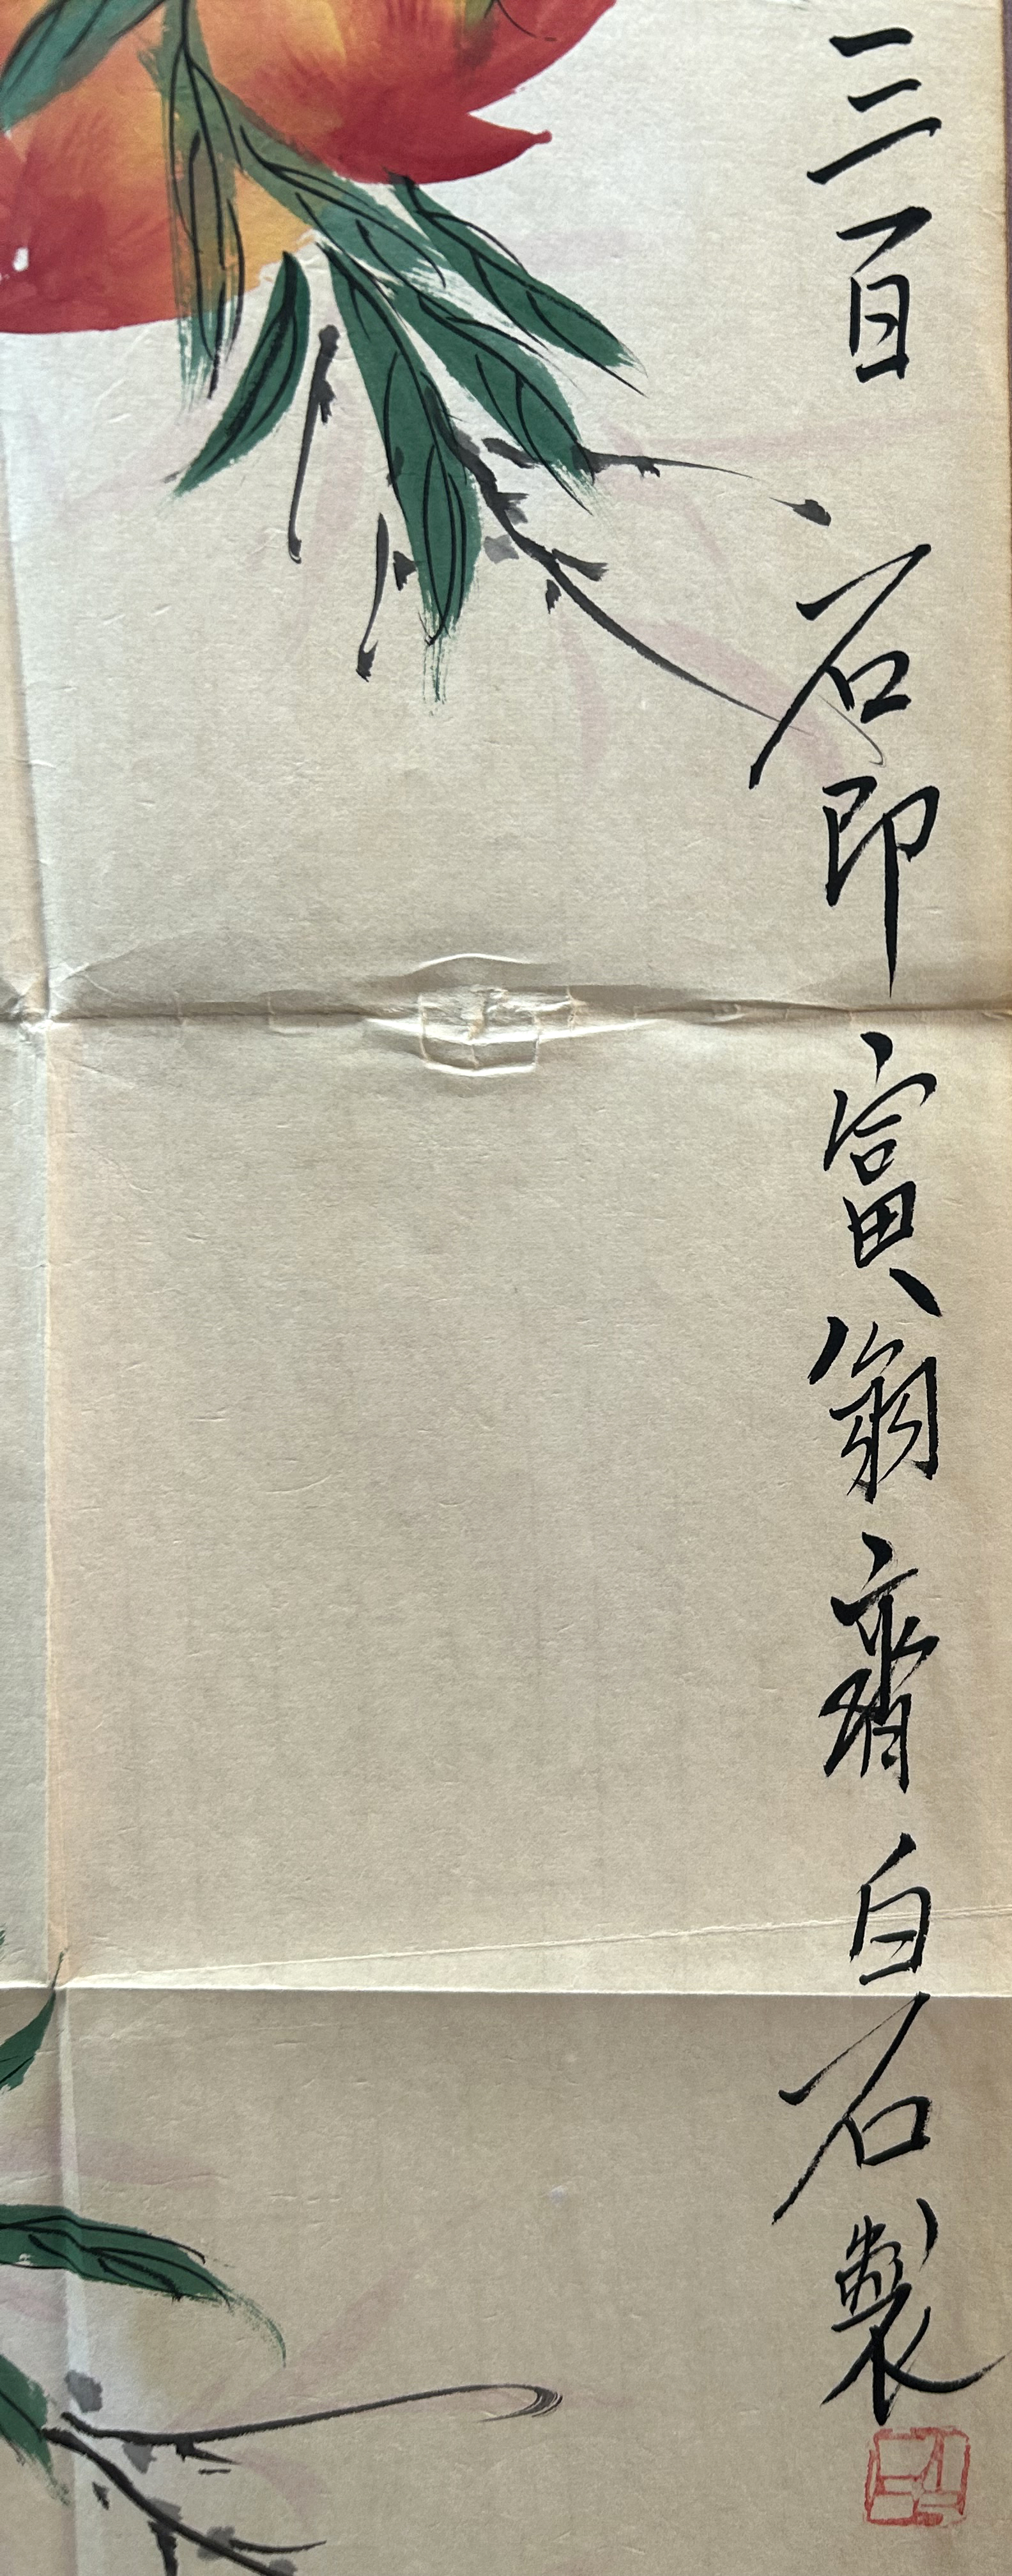 三百石印富翁齊白石製